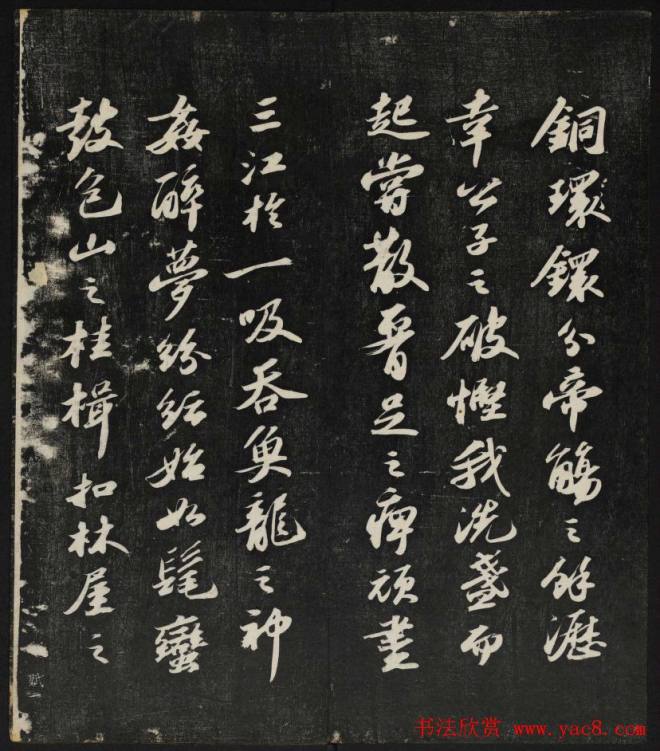 銅環鐶分帝觴之餘瀝
幸公子之破慳我洗盞而
起嘗散腰足之痹頑盡
三江於一吸吞魚龍之神
姦醉夢紛紜始如髦蠻
鼓包山之桂楫扣林屋之
书法欣赏 www.yac8.com